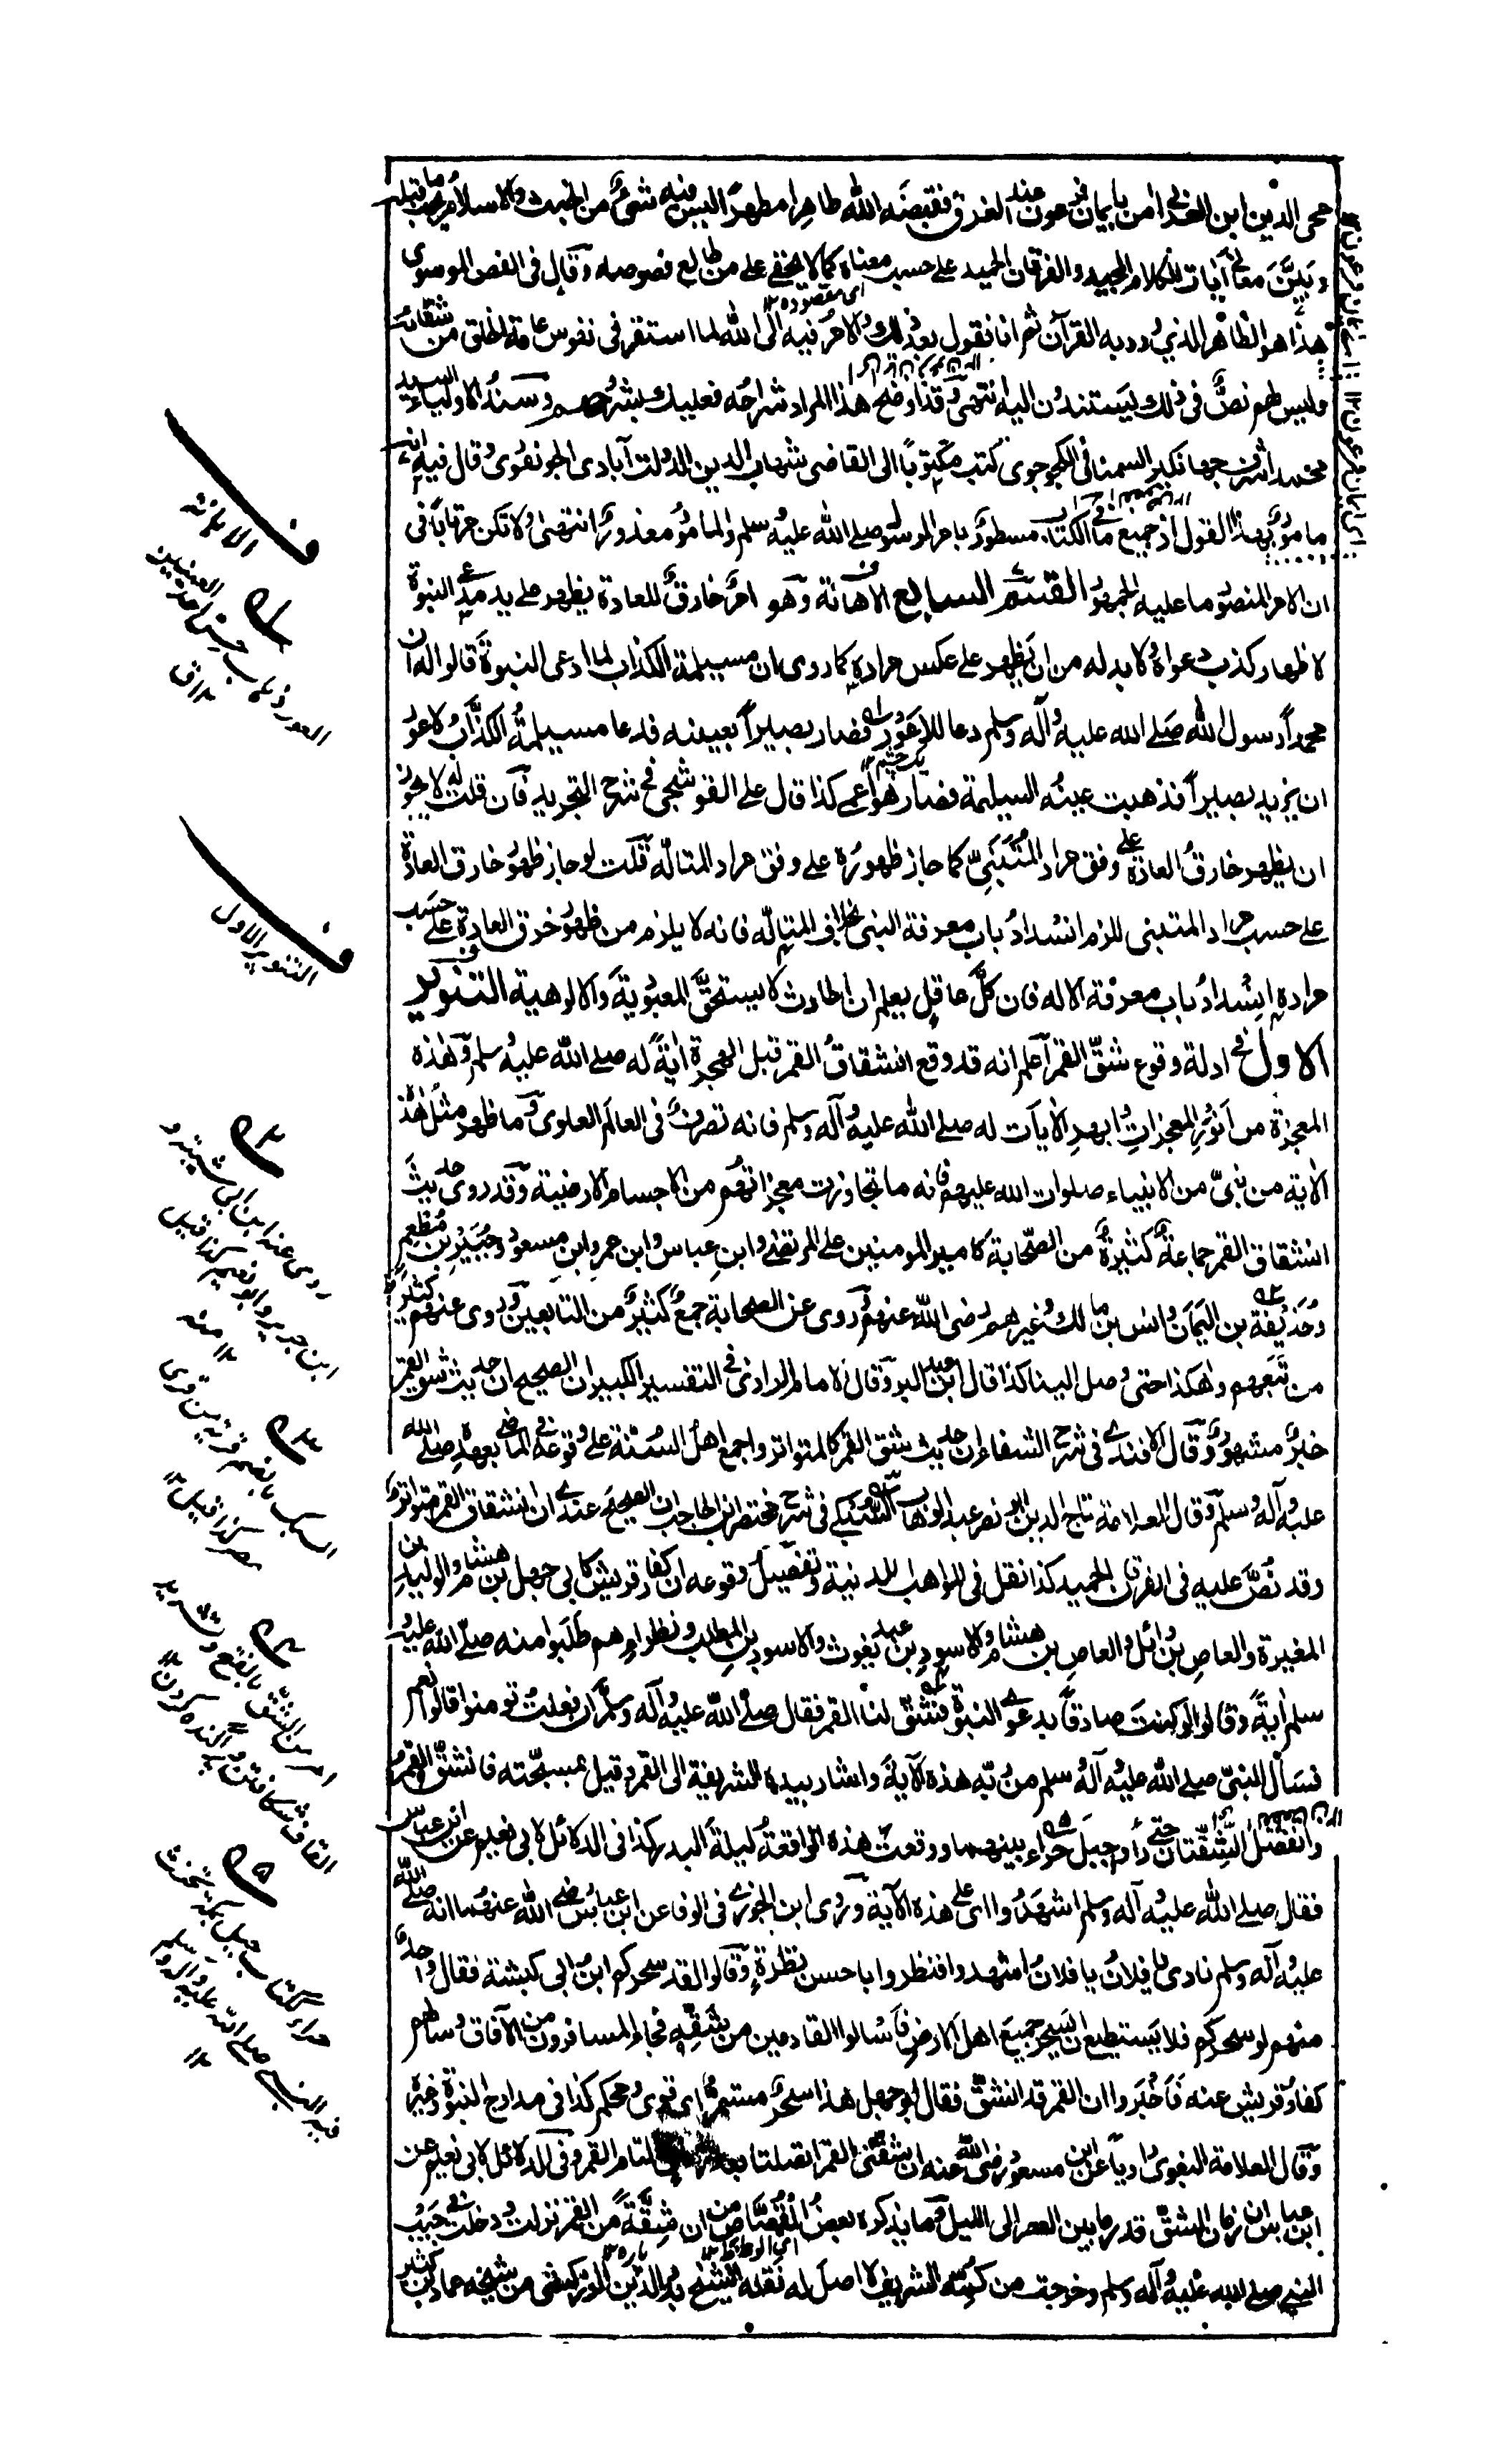 محى الدين ابن العربي امن بايمان فرعون عند الغرق فقبضه الله طاهرا مطهرًا ليس فيه شئ من الخبث والاسلام يجب ما قبله
وبيّن معاني آيات الكلام المجيد والفرقان الحميد على حسب معناه كما لا يخفى على من طالع فصوصه وقال فى الفص الموسوى
هذا هو الظاهر الذي ورد به القرآن ثم انا نقول بعد ذلك والامر فيه الى الله لما استقر فى نفوس عامة الخلق من شقائه
وليس لهم نصٌّ فى ذلك يستندون اليه انتهى وقد اوضح هذا المراد شراحه فعليك بشروحهم وسند الاولياء السيد
محمد اشرف جهانكير السمنانى الكچوچوى كتب مكتوبًا الى القاضى شهاب الدين الدولت آبادى الجونفوى وقال فيه انى
مامور بهذا القول اذ جميع ما في الكتاب مسطور بامر الرسول صلى الله عليه وسلم والمامور معذور انتهى ولا تكن مرتابًا فى
ان الامر المنصور ما عليه الجمهور القسم السابع الاهانة وهو امر خارق للعادة يظهر على يد مدعى النبوة
لاظهار كذب دعواه لا بد له من ان يظهر على عكس مراده كما روى ان مسيلمة الكذاب لما ادعى النبوة قالوا له ان
محمدًا رسول الله صلى الله عليه وآله وسلم دعا للاعور فصار بصيرًا بعينه فدعا مسيلمة الكذاب لاعور
ان يزيد بصيرًا فذهبت عينه السليمة فصار هو اعمى كذا قال على القوشجى في شرح التجريد فان قلت لم لا يجوز
ان يظهر خارق العادة على وفق مراد المتنبّى كما جاز ظهوره على وفق مراد المتالّه قلت لو جاز ظهور خارق العادة
على حسب مراد المتنبى للزم انسداد باب معرفة النبى بخلاف المتالّه فانه لا يلزم من ظهور خرق العادة على حسب
مراده انسداد باب معرفة الاله فان كل عاقل يعلم ان الحادث لا يستحق المعبودية والالوهية التنوير
الاول في ادلة وقوع شق القمر اعلم انه قد وقع انشقاق القمر قبل الهجرة اية له صلى الله عليه وسلم وهذه
المعجزة من انور المعجزات وابهر الآيات له صلى الله عليه وآله وسلم فانه تصرف فى العالم العلوى وما ظهر مثل هذه
الاية من نبى من الانبياء صلوات الله عليهم فانه ما تجاوزت معجزاتهم من الاجسام الارضية وقد روى حديث
انشقاق القمر جماعة كثيرة من الصحابة كامير المومنين على المرتضى وابن عباس وابن عمر وابن مسعود وجبير بن مطعم
وحذيفة بن اليمان وانس بن مالك وغيرهم رضى الله عنهم وروى عن الصحابة جمع كثير من التابعين وروى عنهم كثير
من تبعهم وهكذا حتى وصل الينا كذا قال ابن عبد البر وقال الامام الرازى فى التفسير الكبير ان الصحيح ان حديث شق القمر
خبر مشهور وقال الافندى فى شرح الشفاء ان حديث شق القمر كالمتواتر واجمع اهل السنة على وقوعه فى الماضى بعهده صلى الله
عليه وآله وسلم وقال العلامة تاج الدين ابو نصر عبد الوهاب السبكى فى شرح مختصر ابن الحاجب ان الصحيح عندى ان انشقاق القمر متواتر
وقد نص عليه فى الفرقان الحميد كذا نقل فى المواهب اللدنية وتفصيل وقوعه ان كفار قريش كابى جهل بن هشام والوليد بن
المغيرة والعاص بن وائل والعاص بن هشام والاسود بن عبد يغوث والاسود بن المطلب ونظراءهم طلبوا منه صلى الله عليه و
سلم اية وقالوا لو كنت صادقًا بدعوى النبوة فشق لنا القمر فقال صلى الله عليه وآله وسلم ان فعلت تومنوا قالوا نعم
فسأل النبى صلى الله عليه وآله وسلم من ربه هذه الآية واشار بيده الشريفة الى القمر وقيل بمسبّحته فانشق القمر
وانفصل الشقتان حتى رأوا جبل حراء بينهما ووقعت هذه الواقعة ليلة البدر كذا فى الدلائل لابى نعيم عن ابن عباس
فقال صلى الله عليه وآله وسلم اشهدوا اى على هذه الآية وروى ابن الجوزى فى الوفا عن ابن عباس رضى الله عنهما انه صلى الله
عليه وآله وسلم نادى يا فلان يا فلان اشهدوا فنظروا باحسن نظرة وقالوا لقد سحركم ابن ابى كبشة فقال واحد
منهم لو سحركم فلا يستطيع ان يسحر جميع اهل الارض فاسالوا القادمين من شقه فجاء المسافرون من الآفاق وسالهم
كفار قريش عنه فاخبروا ان القمر قد انشق فقال ابو جهل هذا سحر مستمر اى قوى محكم كذا فى مدارج النبوة وغيره
وقال العلامة البغوى راويًا عن ابن مسعود رضى الله عنه ان شقتى القمر اتصلتا بعد التام القمر وفى الدلائل لابى نعيم عن
ابن عباس ان زمان الشق قدر ما بين العصر الى الليل وما يذكره بعض القصاص من ان شقة من القمر نزلت ودخلت فى جيب
النبى صلى الله عليه وآله وسلم وخرجت من كمه الشريف لا اصل له نقله الشيخ بدر الدين الزركشى من شيخه عماد بن كثير
اى ايمان فرعون ١٢
اى مقصوده ١٢
يك چشم ١٢
ف
الاهانة
ف
التنوير الاول
روى عنه ابن ابى شيبة و
ابن جرير وابو نعيم كذا قيل
١٢ منه
السبك بالضم قرية من قرى
مصر كذا قيل ١٢
امر من الشق بالفتح وتشديد
القاف شكافتن و پراگنده كردن ١٢
حراء ككتاب جبل بمكة تحنث
فيه النبى صلى الله عليه وآله وسلم
١٢